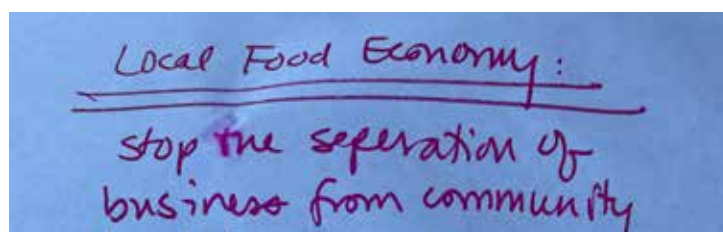 Local Food Economy:
stop the seperation of
business from community